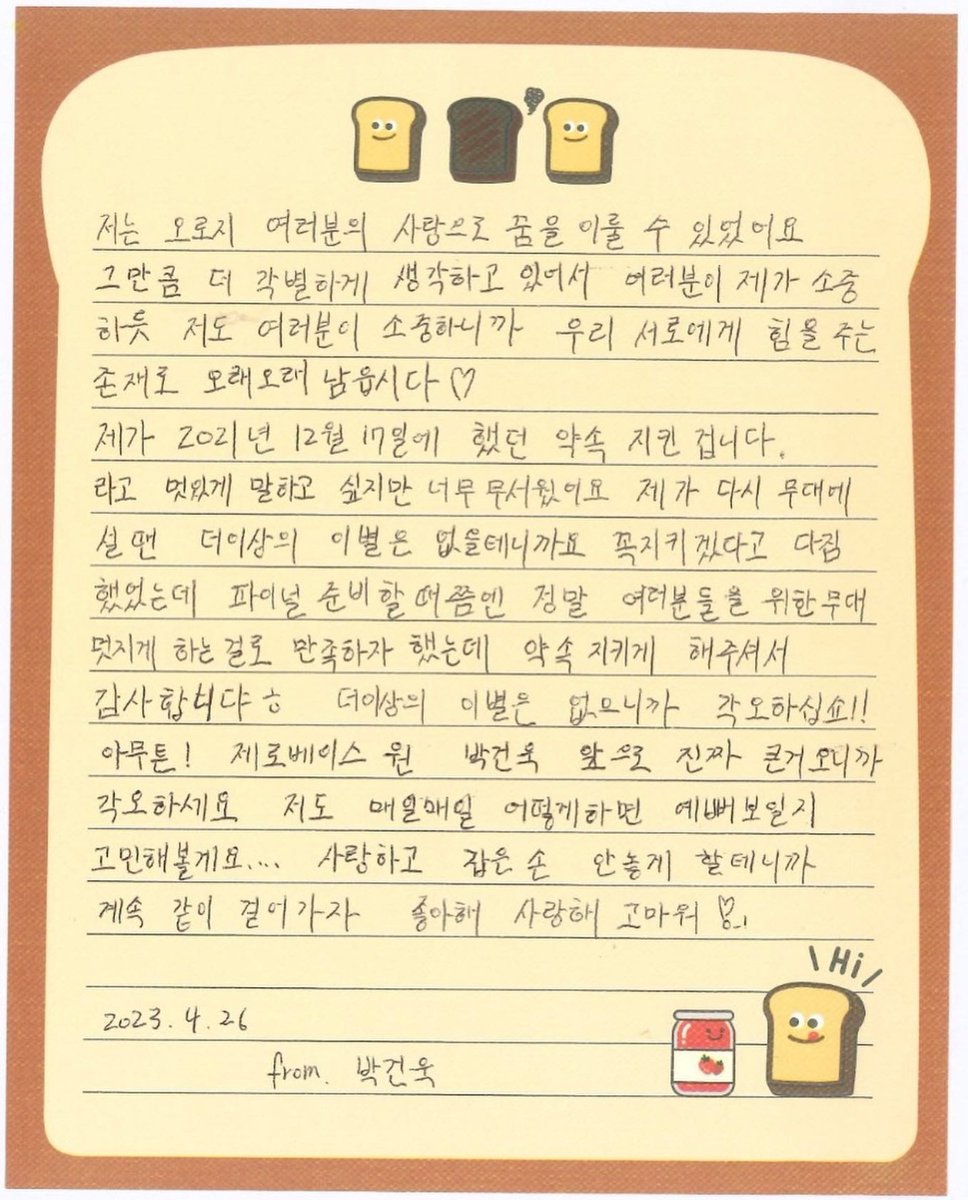 저는 오로지 여러분의 사랑으로 꿈을 이룰 수 있었어요
그만큼 더 각별하게 생각하고 있어서 여러분이 제가 소중
하듯 저도 여러분이 소중하니까 우리 서로에게 힘을 주는
존재로 오래오래 남읍시다 ♡
제가 2021년 12월 17일에 했던 약속 지킨 겁니다.
라고 멋있게 말하고 싶지만 너무 무서웠어요 제가 다시 무대에
설 땐 더이상의 이별은 없을테니까요 꼭지키겠다고 다짐
했었는데 파이널 준비할 때쯤엔 정말 여러분들을 위한무대
멋지게 하는걸로 만족하자 했는데 약속 지키게 해주셔서
감사합니다 ㅎ 더이상의 이별은 없으니까 각오하십쇼!!
아무튼! 제로베이스 원 박건욱 앞으로 진짜 큰거오니까
각오하세요 저도 매일매일 어떻게하면 예뻐보일지
고민해볼게요.... 사랑하고 잡은 손 안놓게 할테니까
계속 같이 걸어가자 좋아해 사랑해 고마워 ♡
2023. 4. 26
from. 박건욱
Hi